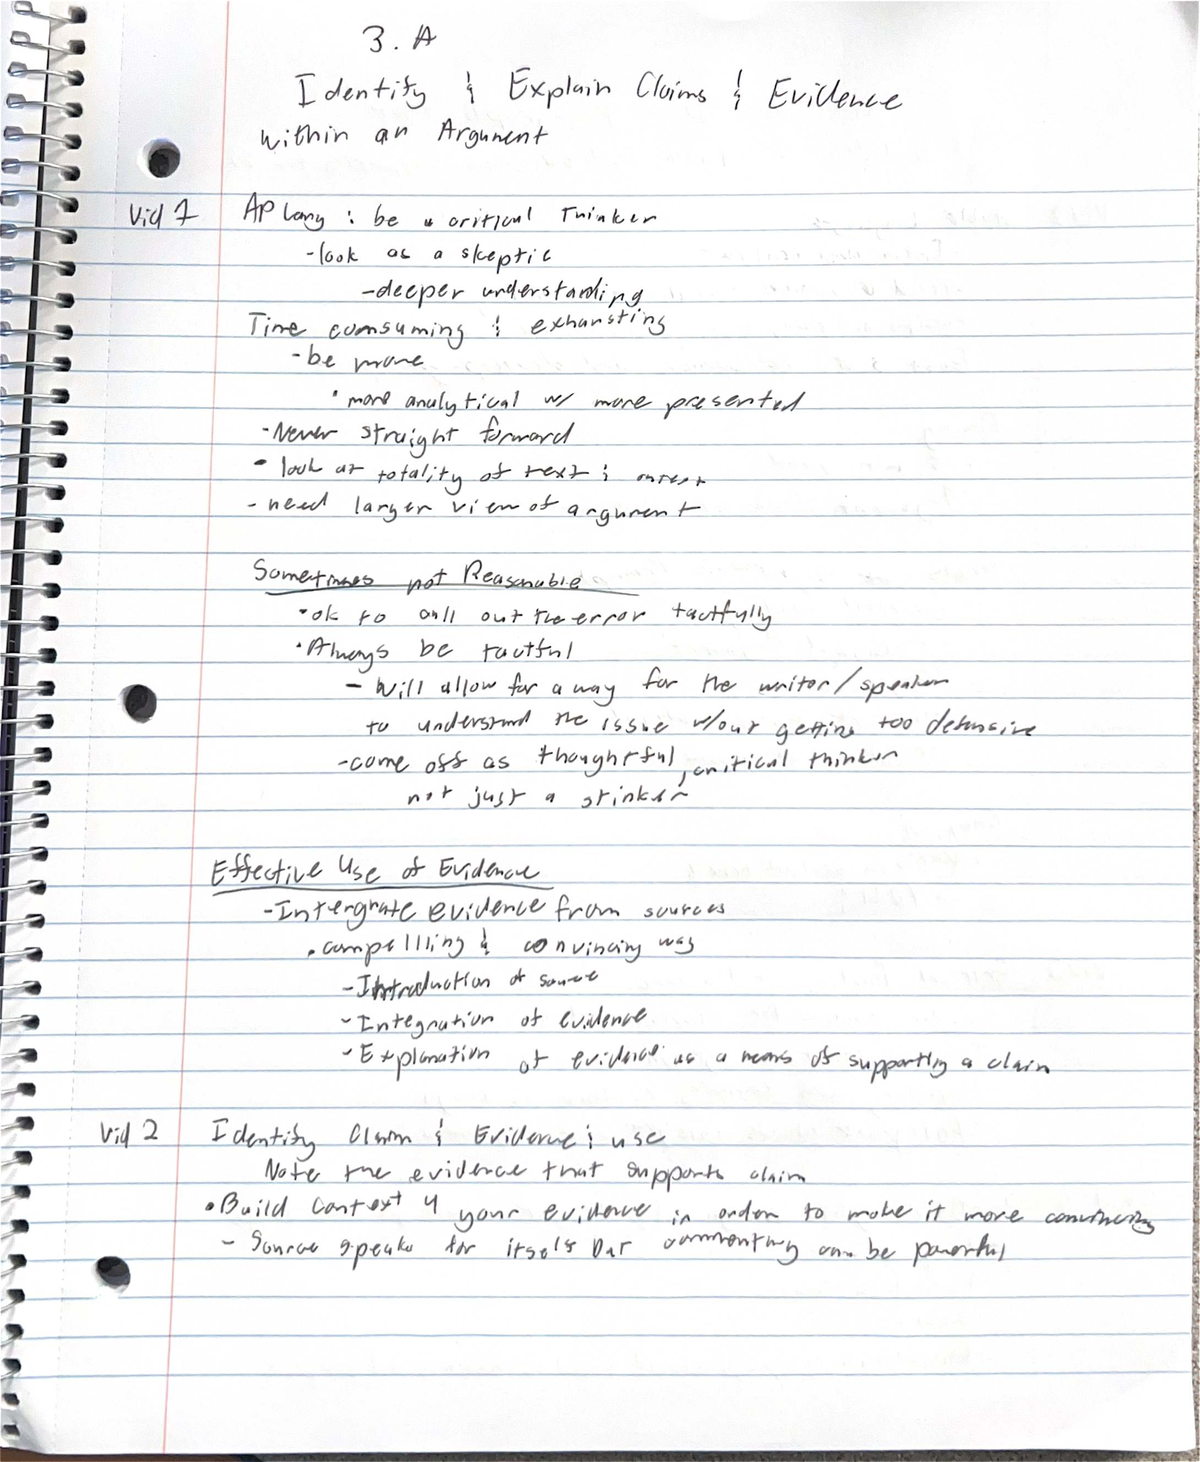 3. A
Identify & Explain Claims & Evidence
within an Argument
Vid 1 AP Lang : be a critical Thinker
-look as a skeptic
-deeper understanding
Time comsuming & exhausting
-be more
• more analytical w/ more presented
-Never straight forward
• look at totality of text &
- need larger view of argument
Sometimes not Reasonable
• ok to call out the error tactfully
• Always be tactful
- Will allow for a way for the writer/speaker
to understand the issue w/out getting too defensive
-come off as thoughtful, critical thinker
not just a stinker
Effective Use of Evidence
-Intergrate evidence from sources
• compellling & convincing way
-Introduction of source
-Integration of evidence
-Explanation of evidence as a means of supporting a claim
Vid 2 Identify Claim & Evidence & use
Note the evidence that supports claim
• Build Context 4 your evidence in order to make it more convincing
- Source speaks for itself but commentary can be powerful